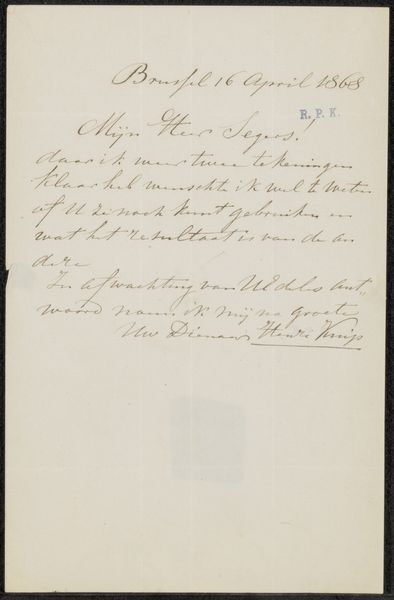 Brussel 16 April 1868
R.P.K.
Mijn Heer Segers!
daar ik weer twee tekeningen
klaar heb wenschte ik wel te weten
of U ze nock kunt gebruiken en
wat het resultaat is van de an
dere
In afwachting van UEdeles ant,
woord noem ik mij na groete
Uw Dienaar Henri Knip